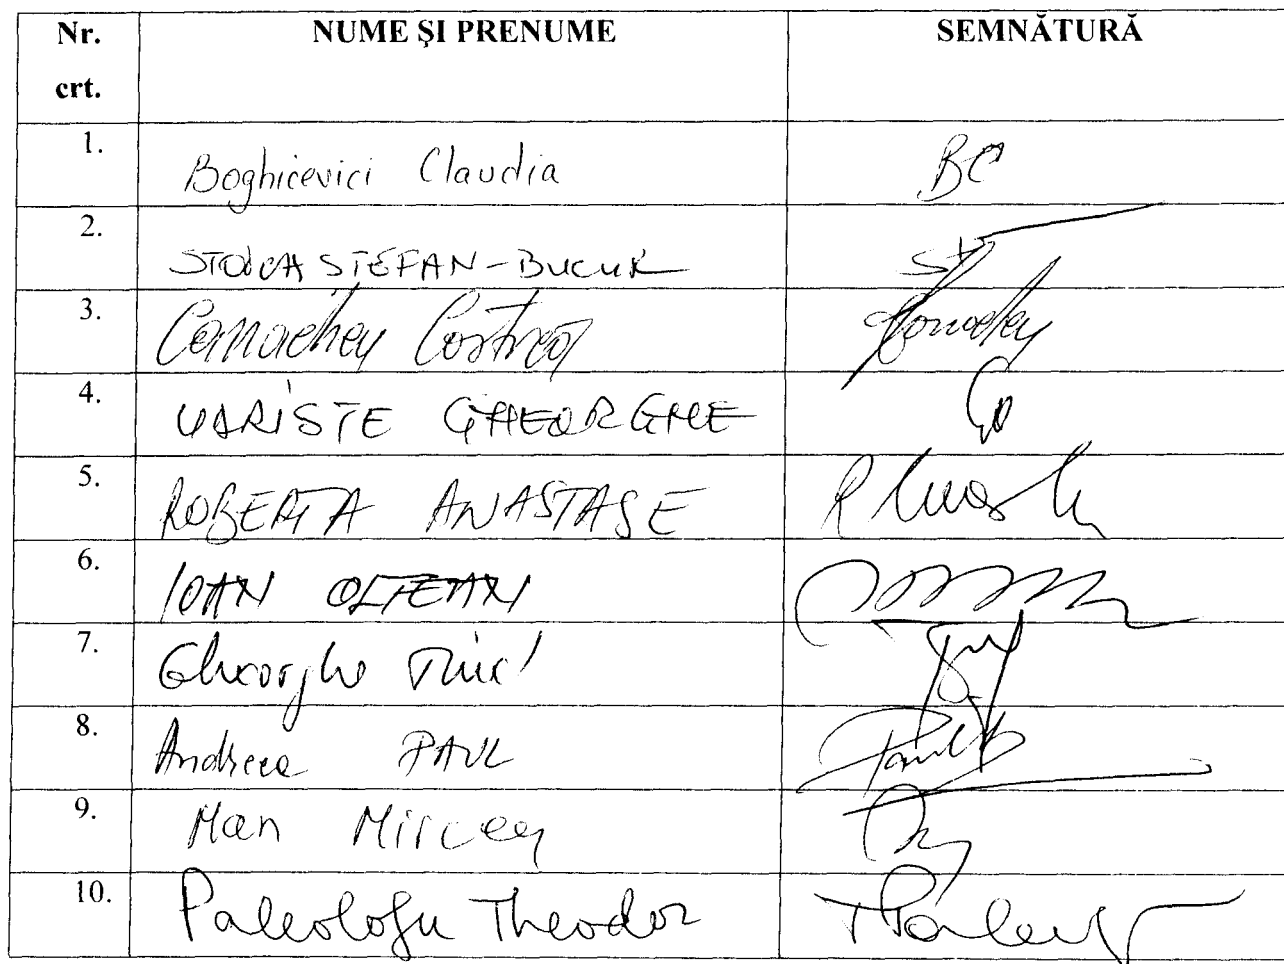 Nr. crt. NUME ŞI PRENUME SEMNĂTURĂ
1. Boghicevici Claudia BC
2. STOICA STEFAN-BUCUR
3. Canacheu Costică
4. VARISTE GHEORGHE
5. ROBERTA ANASTASE
6. IOAN OLTEAN
7. Gheorghe
8. Andreea PAUL
9. Man Mircea
10. Paleologu Theodor